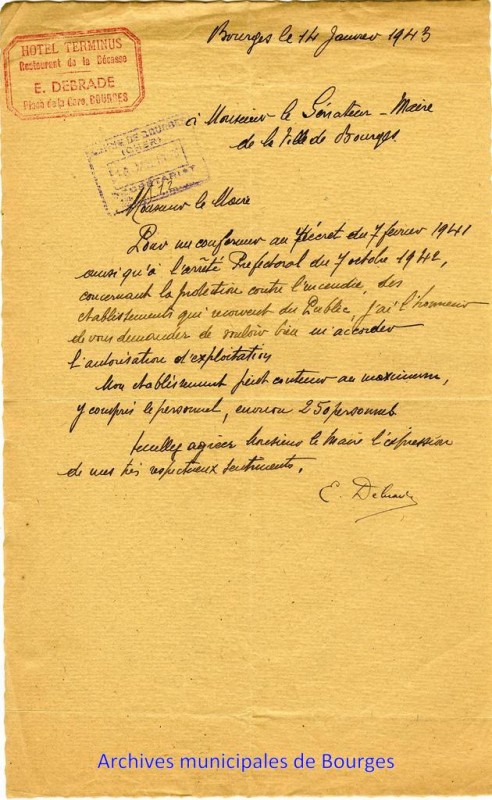 HOTEL TERMINUS
Restaurant de la Bécasse
E. DEBRADE
Place de la Gare, BOURGES
Bourges le 14 Janvier 1943
à Monsieur le Sénateur - Maire
de la Ville de Bourges
MAIRIE DE BOURGES
(CHER)
SECRÉTARIAT
Monsieur le Maire
Pour me conformer au décret du 7 février 1941
ainsi qu'à l'arrêté Préfectoral du 7 octobre 1942,
concernant la protection contre l'incendie, des
établissements qui reçoivent du Public, j'ai l'honneur
de vous demander de vouloir bien m'accorder
l'autorisation d'exploitation
Mon établissement peut contenir au maximum,
y compris le personnel, environ 250 personnes
Veuillez agréer Monsieur le Maire l'expression
de mes très respectueux sentiments.
E. Debrade
Archives municipales de Bourges